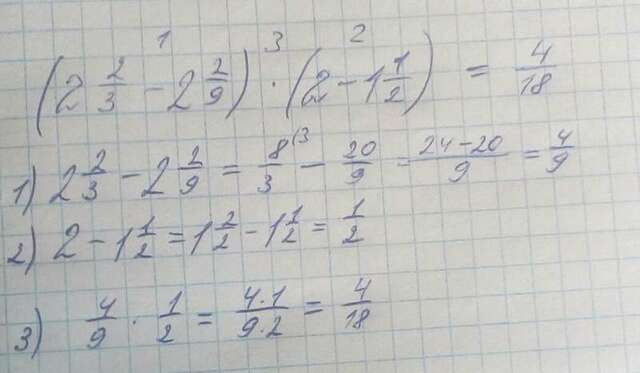 1 3 2
(2 2/3 − 2 2/9) · (2 − 1 1/2) = 4/18
1) 2 2/3 − 2 2/9 = 8/3 ⁽³ − 20/9 = (24−20)/9 = 4/9
2) 2 − 1 1/2 = 1 2/2 − 1 1/2 = 1/2
3) 4/9 · 1/2 = (4·1)/(9·2) = 4/18